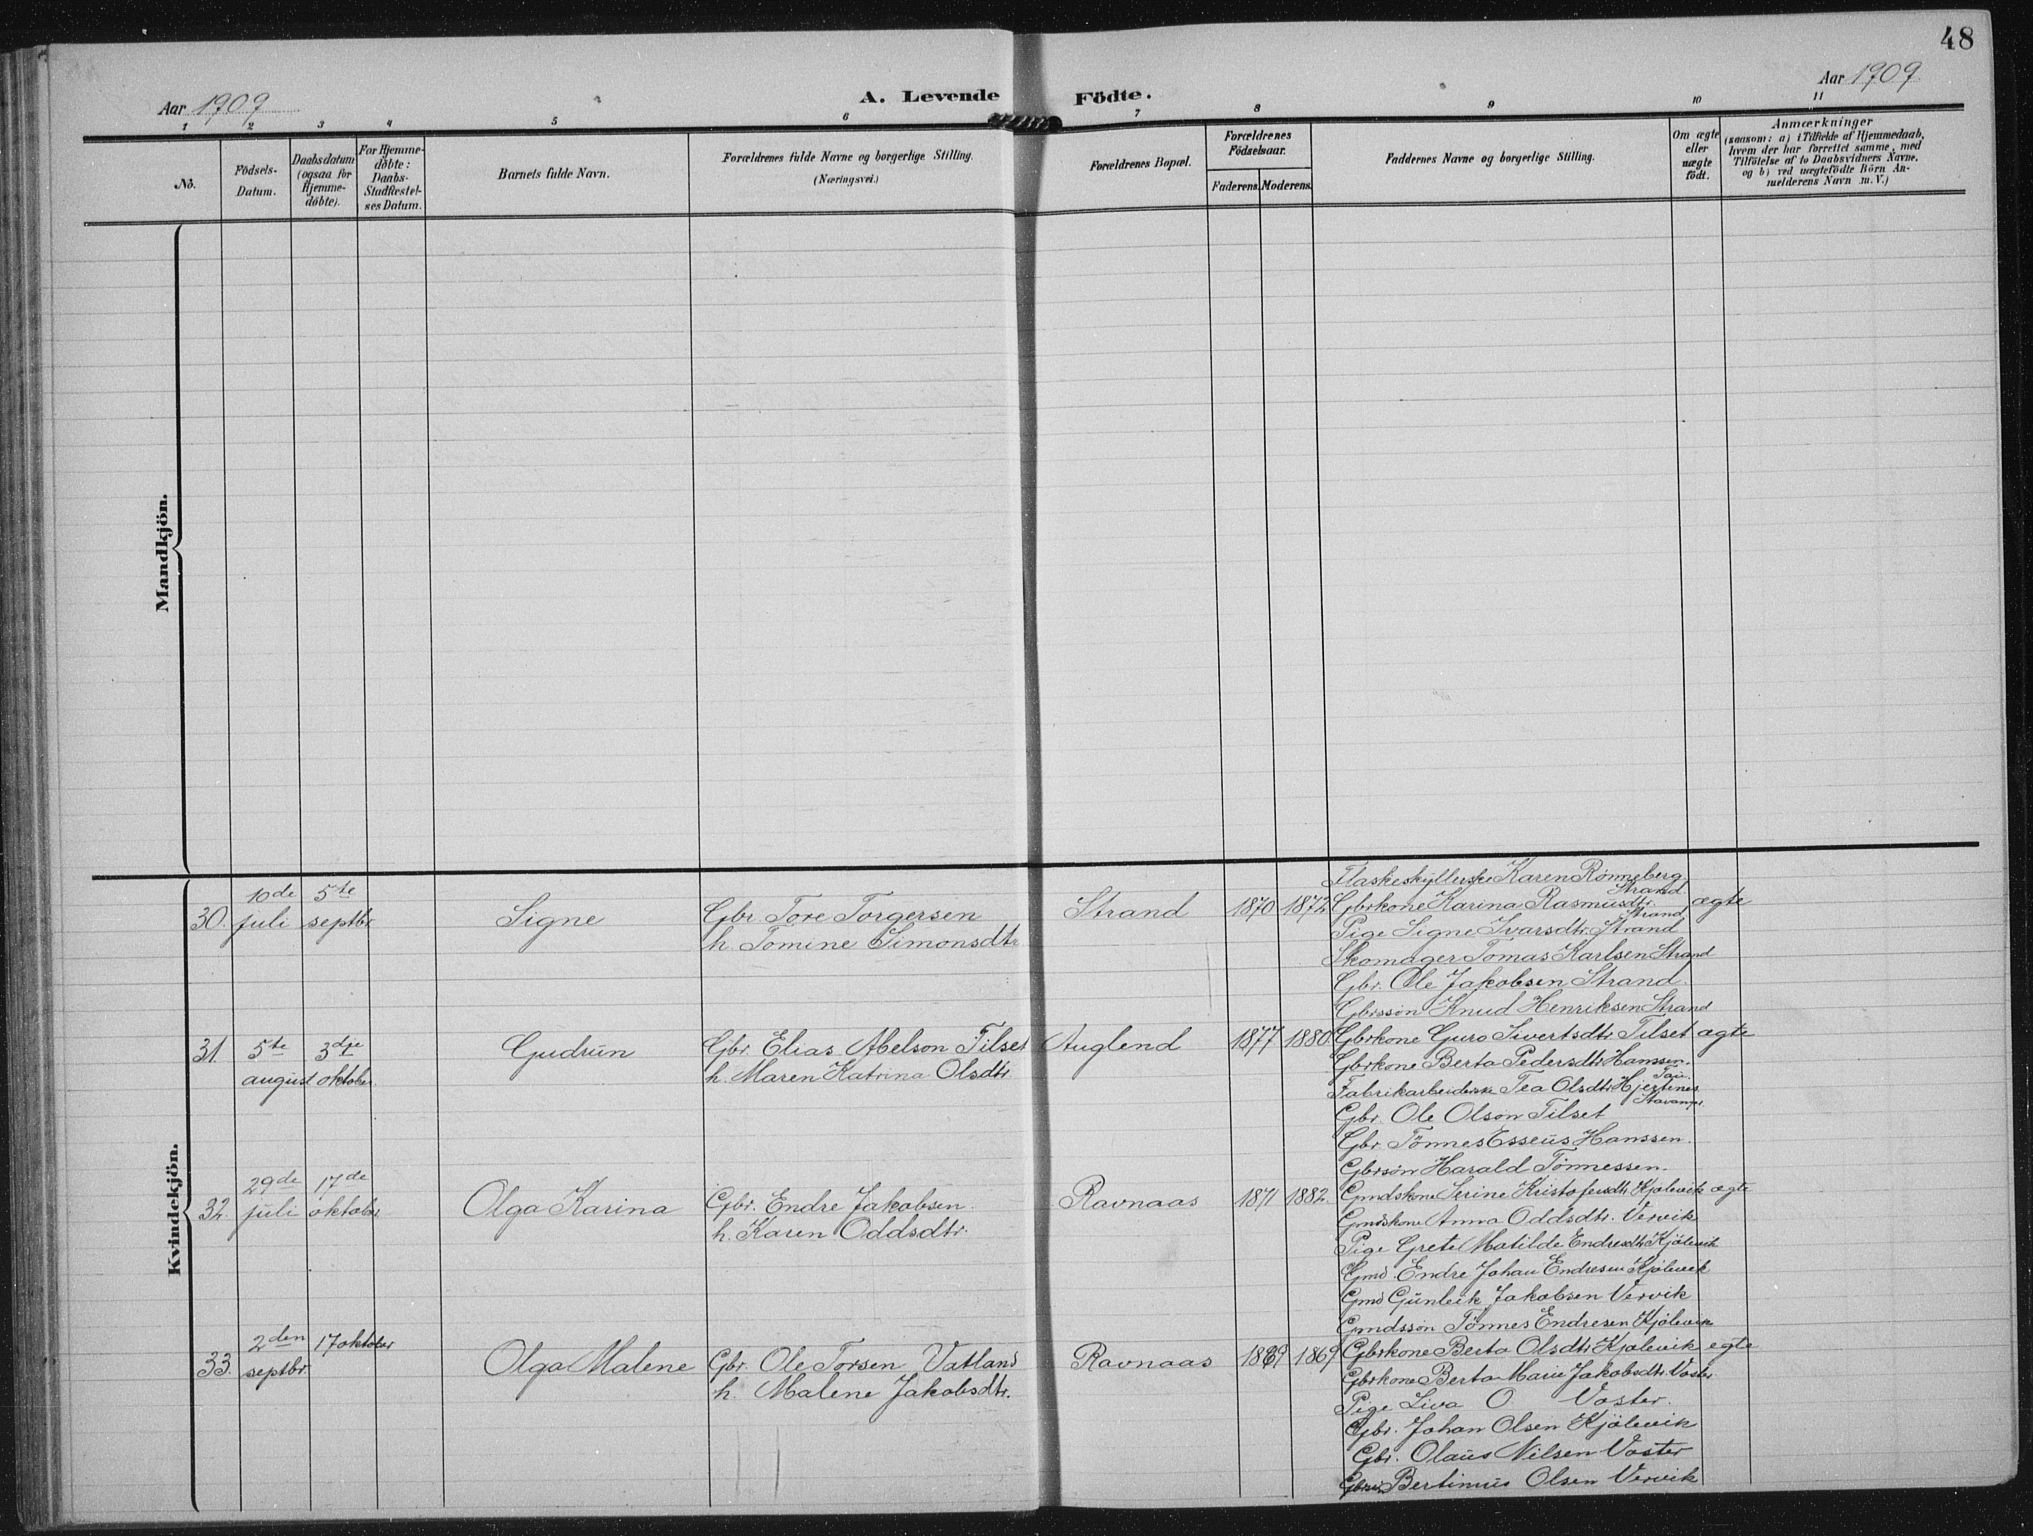 48
Aar 1909
A. Levende Födte.
Aar 1909.
1 2 3 4 5 6 7 8 9 10 11
No.
Födsels-
Datum.
Daabsdatum
(ogsaa for
Hjemme-
döbte).
For Hjemme-
döbte:
Daabs-
Stadfæstel-
ses Datum.
Barnets fulde Navn.
Forældrenes fulde Navne og borgerlige Stilling.
(Næringsvei.)
Forældrenes Bopæl.
Forældrenes
Födselsaar.
Faderens. Moderens.
Faddernes Navne og borgerlige Stilling.
Om ægte
eller
uægte
födt.
Anmærkninger
(saasom: a) i Tilfælde af Hjemmedaab,
hvem der har forrettet samme, med
Tilföielse af to Daabsvidners Navne,
og b) ved uægtefödte Börn An-
melderens Navn m. V.)
Mandkjön.
Kvindekjön.
30.
10de
juli
5te
septbr.
Signe
Gbr. Tore Torgersen
h. Tomine Simonsdtr.
Strand
1870 1872
Flaskeskyllerske Karen Rönneberg
Strand
Gbrkone Karina Rasmusdtr.
Strand
Pige Signe Ivarsdtr. Strand
Skomager Tomas Karlsen Strand
Gbr. Ole Jakobsen Strand.
Gbrssön Knud Henriksen Strand
ægte
31
5te
august
3dje
oktober
Gudrun
Gbr. Elias Abelson Tilset
h. Maren Katrina Olsdtr.
Auglend
1877 1880
Gbrkone Guro Sivertsdtr. Tilset
Gbrkone Berta Pedersdtr Hanssen.
Tau
Fabrikarbeiderske Tea Olsdtr Hjestenes
Stavanger
Gbr. Ole Olson Tilset
Gbr. Tönnes Esseus Hanssen.
Gbrsön Harald Tönnessen.
ægte
32.
29de
juli
17de
oktober
Olga Karina
Gbr. Endre Jakobsen.
h. Karen Oddsdtr.
Ravnaas
1871 1882.
Gmdskone Serine Kristofersdtr. Kjölevik
Gmdskone Anna Oddsdtr. Vervik
Pige Grete Matilde Endresdtr Kjölevik
Gmd. Endre Johan Endresen Kjölevik
Gmd Gunleik Jakobsen Vervik
Gmdssön Tönnes Endresen Kjölevik
ægte
33.
2den
septbr.
17 oktober
Olga Malene
Gbr. Ole Torsen Vatland
h. Malene Jakobsdtr.
Ravnaas
1869 1869
Gbrkone Berta Olsdtr Kjölevik
Gbrkone Berta Marie Jakobsdtr. Voster
Pige Liva O. Voster.
Gbr. Johan Olsen Kjölevik
Gbr. Olaus Nilsen Voster
Gbrssön Bertinius Olsen Vervik
egte